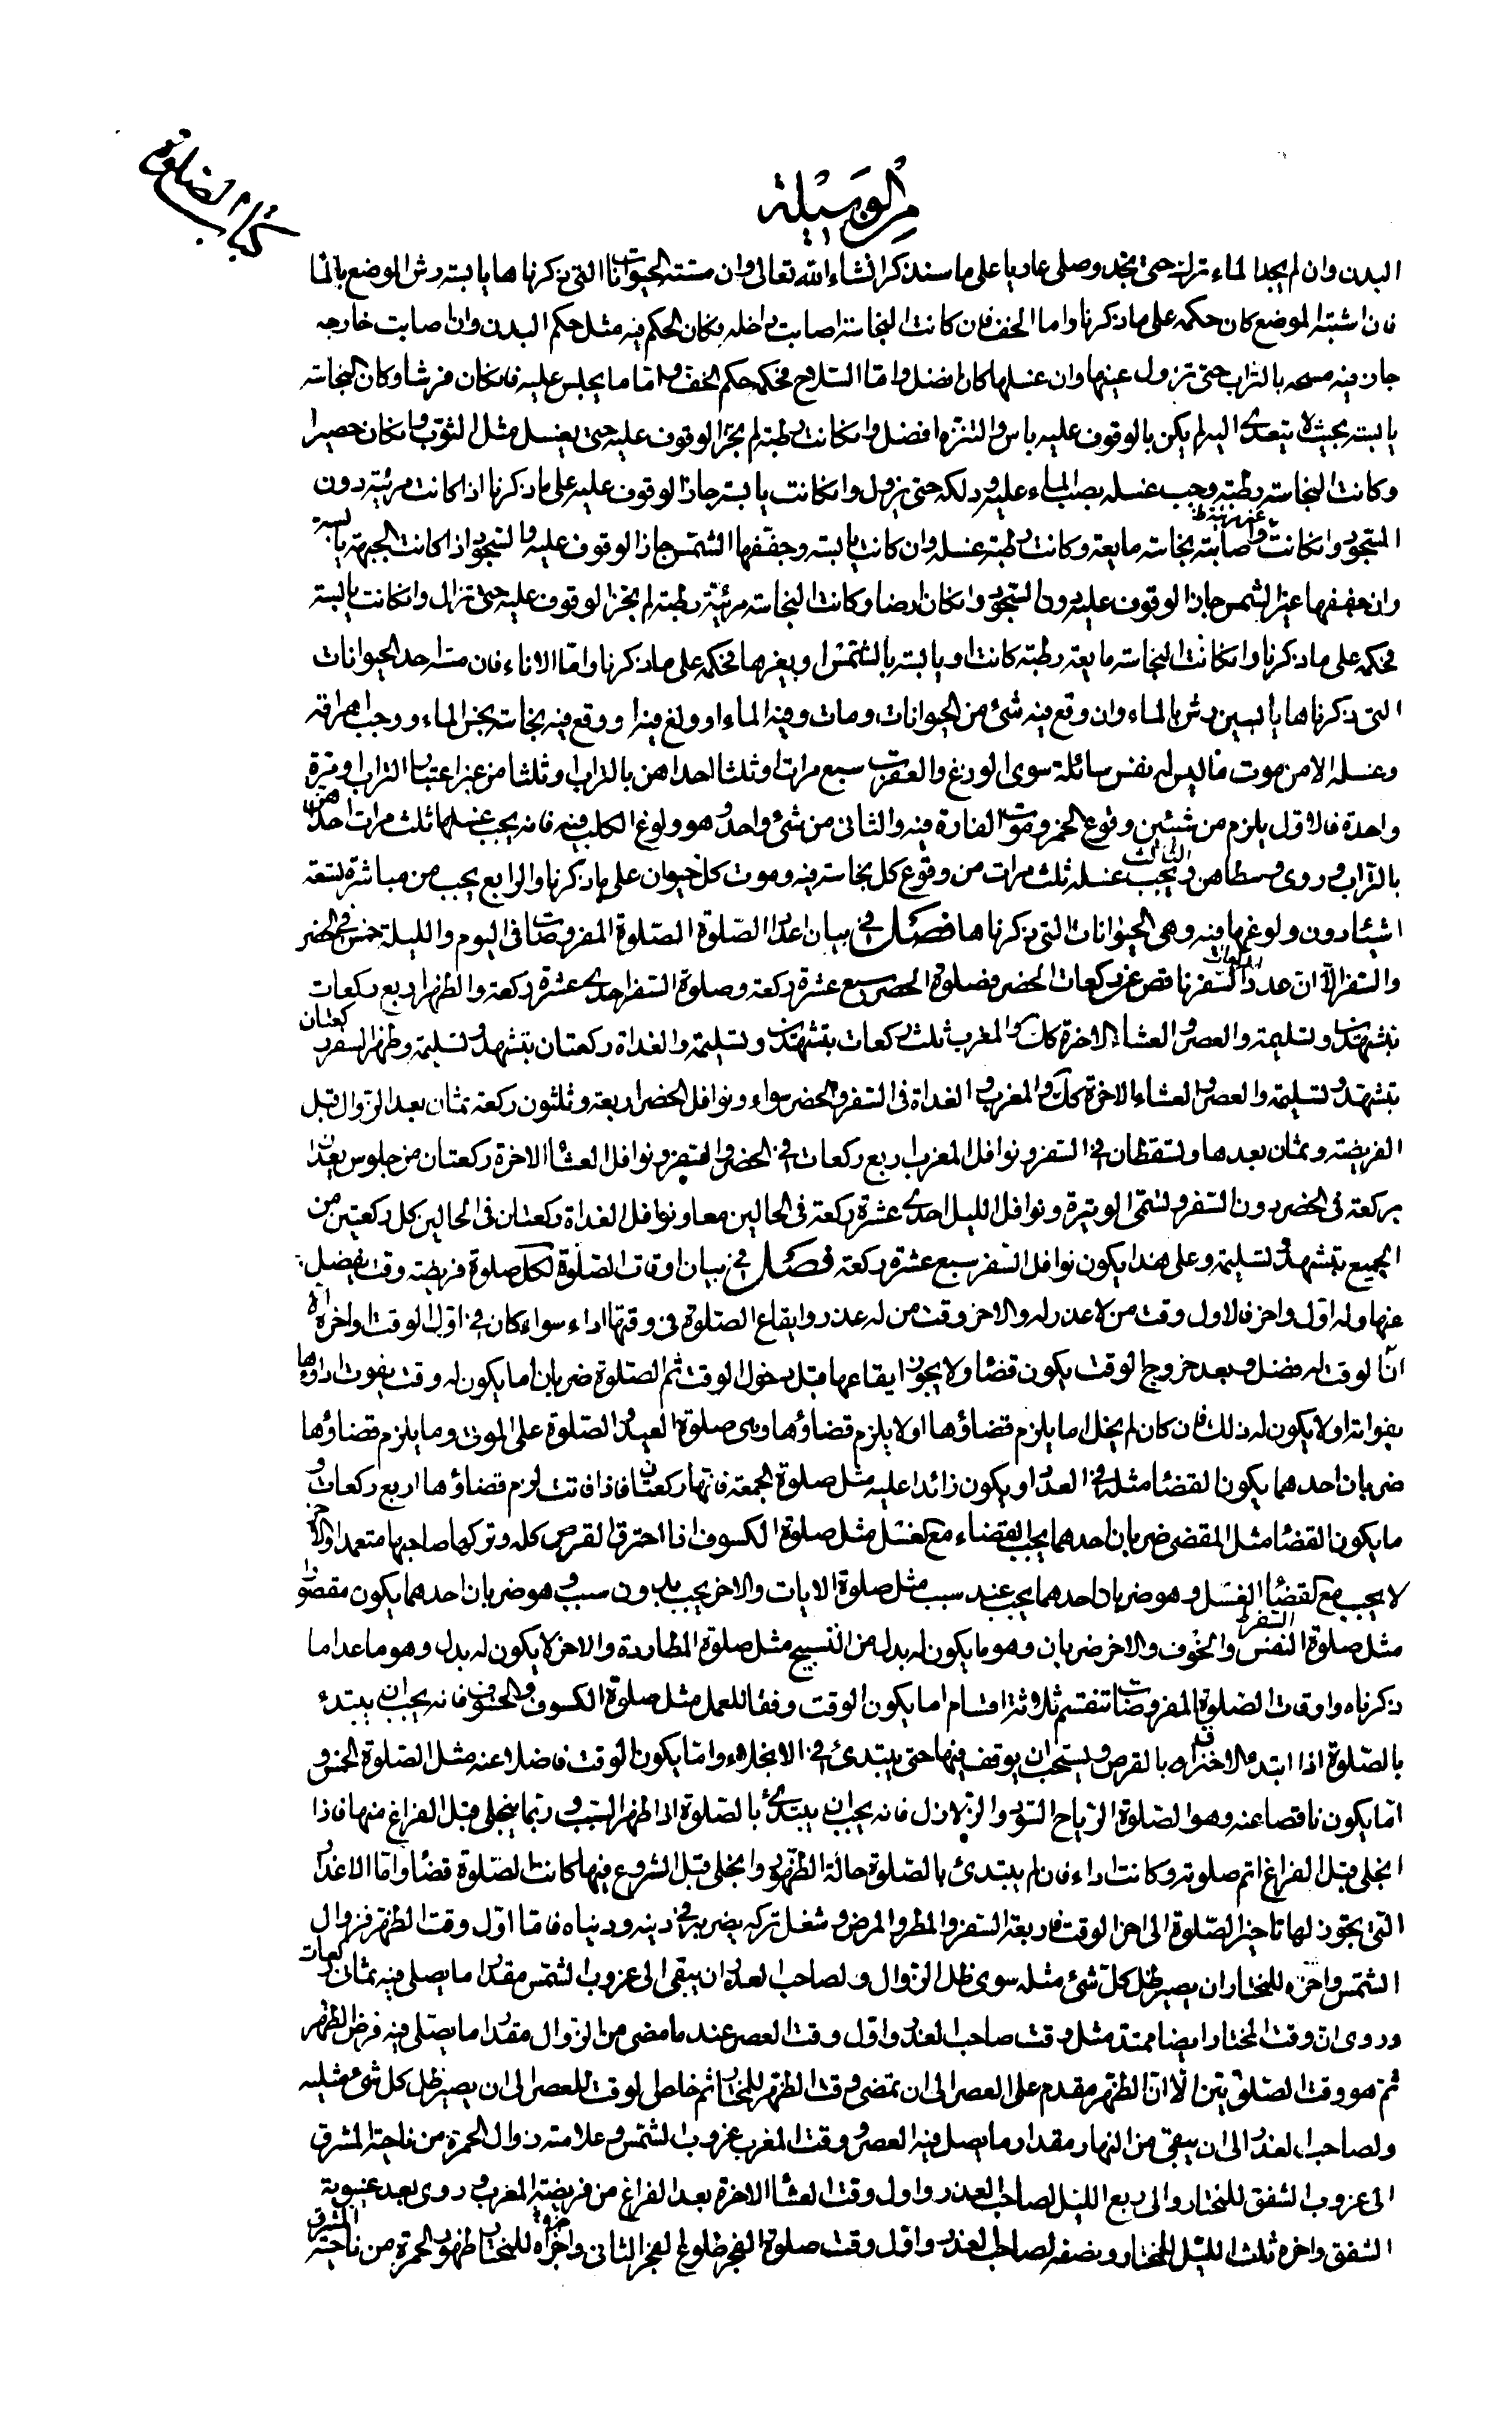 كتاب الصلوة
من الوسيلة
البدن وان لم يجد الماء تركه حتى يجد وصلى عاريا على ما سنذكر انشاء الله تعالى وان مسته الحيوانات التى ذكرناها يابسته رش الموضع بالما
فان اشتبه الموضع كان حكمه على ما ذكرنا واما الخف فان كانت النجاسة اصابت داخله فكان الحكم فيه مثل حكم البدن وان اصابت خارجه
جاز فيه مسحه بالتراب حتى تزول عينها وان غسلها كان افضل واما السلاح فحكمه حكم الخف واما ما يجلس عليه فان كان فرشا وكان النجاسة
يابسة بحيث لا يتعدى اليه لم يكن بالوقوف عليه باس والتنزه افضل وان كانت رطبة لم يجز الوقوف عليه حتى يغسل مثل الثوب وان كان حصيرا
وكانت النجاسة رطبة وجب غسله بصب الماء عليه ودلكه حتى يزول وان كانت يابسة جاز الوقوف عليه على ما ذكرنا اذا كانت مرئية دون
السجود وان كانت اصابته نجاسة مايعة غير مرئية وكانت رطبة غسله وان كانت يابسة وجففها الشمس جاز الوقوف عليه والسجود اذا كانت الجبهة يابسة
وان جففها غير الشمس جاز الوقوف عليه دون السجود وان كان ارضا وكانت النجاسة مرئية رطبة لم يجز الوقوف عليه حتى تزال وان كانت يابسة
فحكمه على ما ذكرنا وان كانت النجاسة مايعة رطبة كانت او يابسة بالشمس او بغيرها فحكمه على ما ذكرنا واما الاناء فان مسه احد الحيوانات
التى ذكرناها يابسين رش بالماء وان وقع فيه شئ من الحيوانات ومات وفيه الماء او ولغ فيه او وقع فيه نجاسة نجس الماء ووجب اهراقه
وغسله الا من موت ما ليس له نفس سائلة سوى الوزغ والعقرب سبع مرات او ثلثا احداهن بالتراب او ثلثا من غير اعتبار التراب او مرة
واحدة فالاول يلزم من شيئين وقوع الخمر وموت الفارة فيه والثانى من شئ واحد وهو ولوغ الكلب فيه فانه يجب غسلها ثلث مرات احدهن
بالتراب وروى وسطاهن والثالث يجب غسله ثلث مرات من وقوع كل نجاسة فيه وموت كل حيوان على ما ذكرنا والرابع يجب من مباشرة تسعة
اشياء دون ولوغها فيه وهى الحيوانات التى ذكرناها فصل فى بيان اعداد الصلوة الصلوة المفروضات فى اليوم والليلة خمس فى الحضر
والسفر الا ان عدد ركعات السفر ناقص عن ركعات الحضر فصلوة الحضر سبع عشرة ركعة وصلوة السفر احدى عشرة ركعة والظهر اربع ركعات
بتشهدين وتسليمة والعصر والعشاء الاخرة كك والمغرب ثلث ركعات بتشهدين وتسليمة والغداة ركعتان بتشهد وتسليمة وظهر السفر ركعتان
بتشهد وتسليمة والعصر والعشاء الاخرة كك والمغرب والغداة فى السفر والحضر سواء ونوافل الحضر اربعة وثلثون ركعة ثمان بعد الزوال قبل
الفريضة وثمان بعدها وتسقطان فى السفر ونوافل المغرب اربع ركعات فى الحضر والسفر ونوافل العشاء الاخرة ركعتان من جلوس يعدان
بركعة فى الحضر دون السفر وتسمى الوتيرة ونوافل الليل احدى عشرة ركعة فى الحالين معا ونوافل الغداة ركعتان فى الحالين كل ركعتين من
الجميع بتشهد وتسليمة وعلى هذا يكون نوافل السفر سبع عشرة ركعة فصل فى بيان اوقات الصلوة لكل صلوة فريضة وقت يفضل
عنها وله اول واخر فالاول وقت من لا عذر له والاخر وقت من له عذر وايقاع الصلوة فى وقتها اداء سواء كان فى اول الوقت او اخره الا
ان الوقت له فضل وبعد خروج الوقت يكون قضاء ولا يجوز ايقاعها قبل دخول الوقت ثم الصلوة ضربان اما يكون له وقت يفوت اداؤها
بفواته او لا يكون له ذلك فان كان لم يخل اما يلزم قضاؤها او لا يلزم قضاؤها وهى صلوة العيد والصلوة على الموتى وما يلزم قضاؤها
ضربان احدهما يكون القضاء مثله فى العدد او يكون زائدا عليه مثل صلوة الجمعة فانها ركعتان فاذا فاتت لزم قضاؤها اربع ركعات و
ما يكون القضاء مثل المقضى ضربان احدهما يجب القضاء مع الغسل مثل صلوة الكسوف اذا احترق القرص كله وتركها صاحبها متعمدا والاخر
لا يجب مع القضاء الغسل وهو ضربان احدهما يجب عند سبب مثل صلوة الايات والاخر يجب بدون سبب وهو ضربان احدهما يكون مقصورا
مثل صلوة السفر والخوف والاخر ضربان وهو ما يكون له بدل من التسبيح مثل صلوة المطاردة والاخر لا يكون له بدل وهو ما عدا ما
ذكرناه واوقات الصلوة المفروضات تنقسم ثلاثة اقسام اما يكون الوقت وفقا للعمل مثل صلوة الكسوف والخسوف فانه يجب ان يبتدء
بالصلوة اذا ابتدء الاحتراق بالقرص ويستحب ان يوقف فيها حتى يبتدئ فى الانجلاء واما يكون الوقت فاضلا عنه مثل الصلوة الخمس و
اما يكون ناقصا عنه وهو الصلوة الرياح السود والزلازل فانه يجب ان يبتدئ بالصلوة اذا ظهر السبب وربما ينجلى قبل الفراغ منها فاذا
انجلى قبل الفراغ اتم صلوته وكانت اداء فان لم يبتدئ بالصلوة حالة الظهور وانجلى قبل الشروع فيها كانت الصلوة قضاء واما الاعذار
التى يجوز لها تاخير الصلوة الى اخر الوقت فاربعة السفر والمطر والمرض وشغل تركه يضر به فى دينه ودنياه فاما اول وقت الظهر فزوال
الشمس واخره للمختار ان يصير ظل كل شئ مثله سوى ظل الزوال ولصاحب العذر ان يبقى الى غروب الشمس مقدار ما يصلى فيه ثمان ركعات
وروى ان وقت المختار ايضا ممتد مثل وقت صاحب العذر واول وقت العصر عند ما مضى من الزوال مقدار ما يصلى فيه فرض الظهر
ثم هو وقت الصلوتين الا ان الظهر مقدم على العصر الى ان تمضى وقت الظهر للمختار ثم خاص الوقت للعصر الى ان يصير ظل كل شئ مثليه
ولصاحب العذر الى ان يبقى من النهار مقدار ما يصل فيه العصر ووقت المغرب غروب الشمس وعلامته زوال الحمرة من ناحية المشرق
الى غروب الشفق للمختار والى ربع الليل لصاحب العذر واول وقت العشاء الاخرة بعد الفراغ من فريضة المغرب وروى بعد غيبوبة
الشفق واخره ثلث الليل للمختار ونصفه لصاحب العذر واول وقت صلوة الفجر طلوع الفجر الثانى واخره للمختار ظهور الحمرة من ناحية المشرق